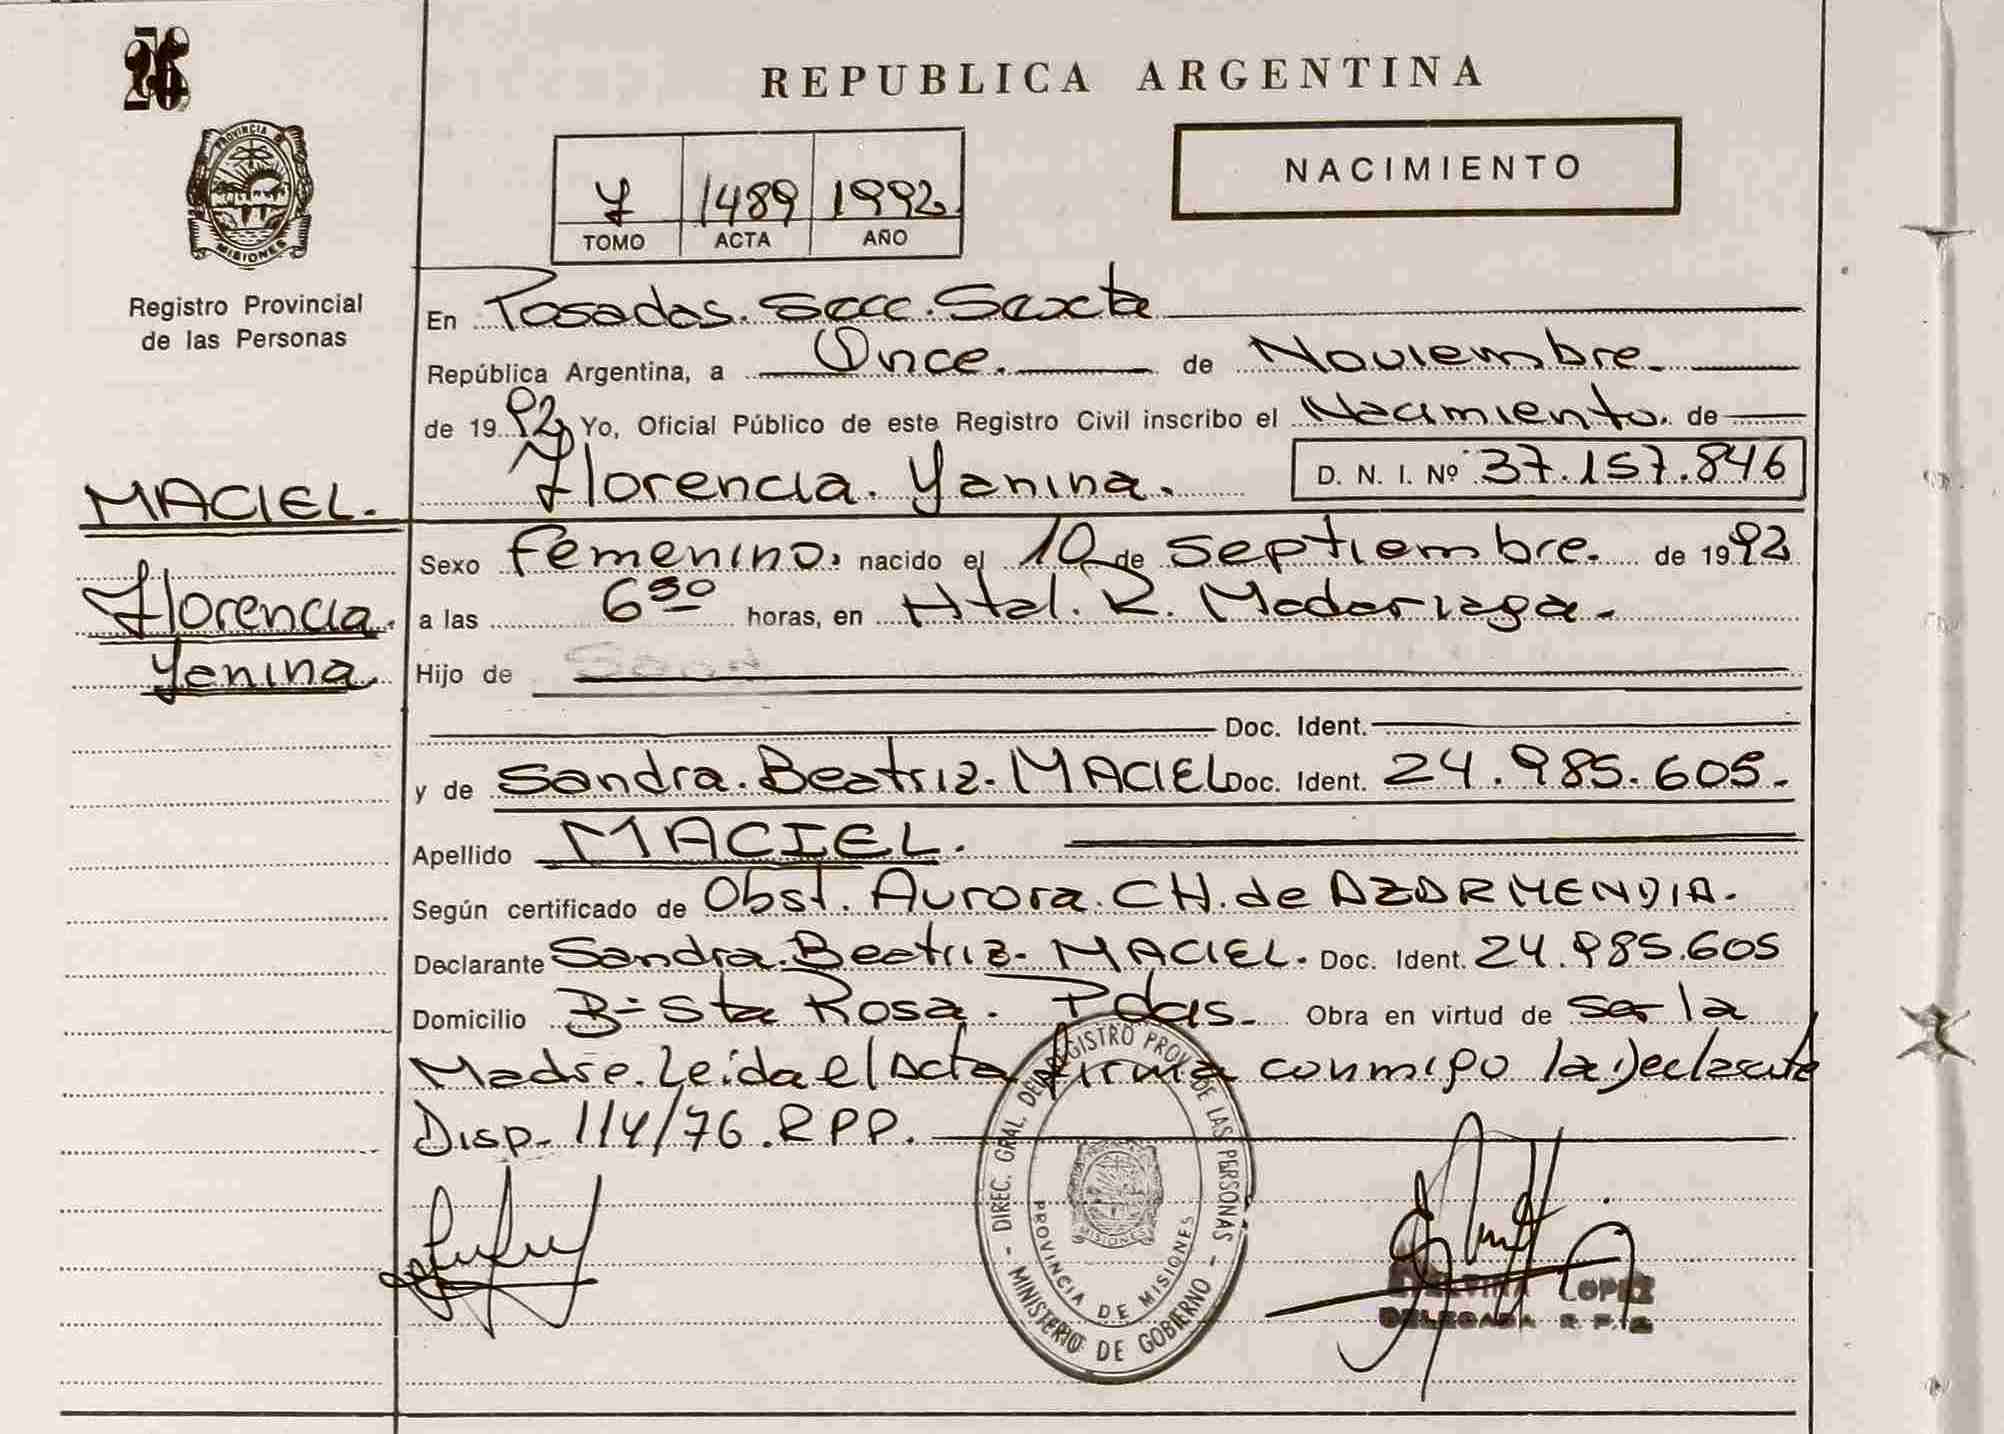 REPUBLICA ARGENTINA
PROVINCIA DE
MISIONES
Registro Provincial
de las Personas
Y 1489 1992
TOMO ACTA AÑO
NACIMIENTO
En Posadas. Secc. Sexta
República Argentina, a Once. de Noviembre.
de 1992 Yo, Oficial Público de este Registro Civil inscribo el Nacimiento. de
Florencia. Yanina. D. N. I. Nº 37.157.846
MACIEL.
Florencia.
Yanina.
Sexo Femenino, nacido el 10 de Septiembre. de 1992
a las 6 30 horas, en Htal. R. Madariaga.
Hijo de
Doc. Ident.
y de Sandra. Beatriz. MACIEL Doc. Ident. 24.985.605.
Apellido MACIEL.
Según certificado de Obst. Aurora. CH. de AZARMENDIA.
Declarante Sandra. Beatriz. MACIEL. Doc. Ident. 24.985.605
Domicilio Bº Sta Rosa. Pdas. Obra en virtud de ser la
Madre. Leida el Acta firma conmigo la Declarante
Disp. 114/76. RPP.
DIREC. GRAL. DEL REGISTRO PROV. DE LAS PERSONAS
PROVINCIA DE MISIONES
MINISTERIO DE GOBIERNO
MISIONES
LOPEZ
DELEGADA